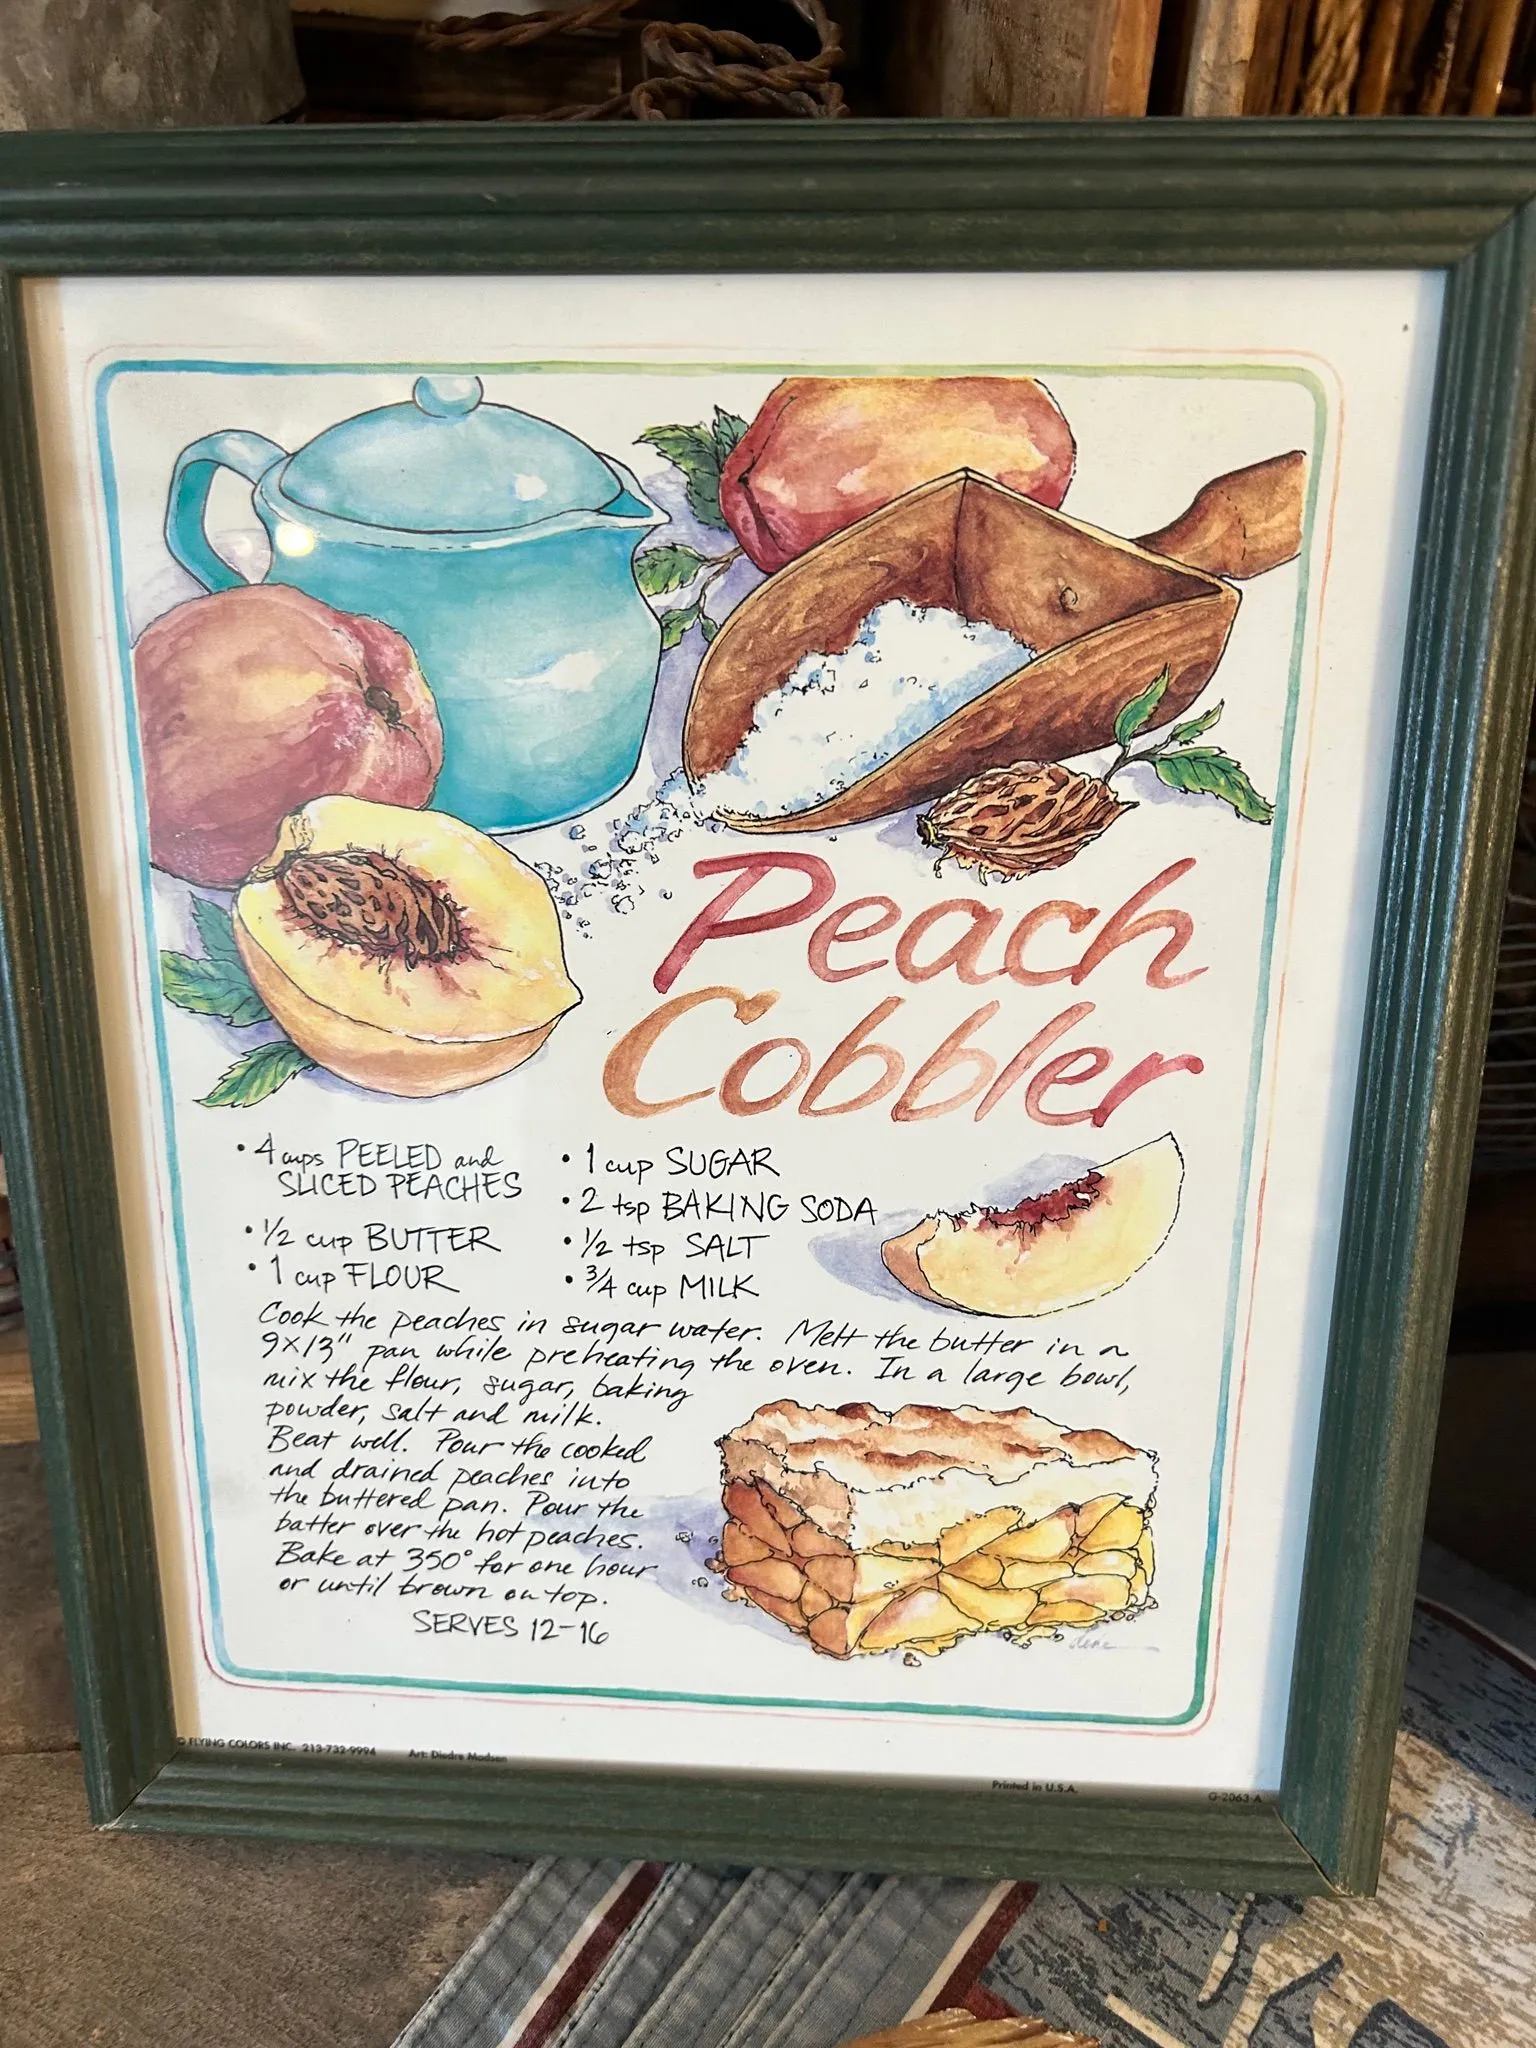 Peach
Cobbler
• 4 cups PEELED and
SLICED PEACHES
• 1/2 cup BUTTER
• 1 cup FLOUR
• 1 cup SUGAR
• 2 tsp BAKING SODA
• 1/2 tsp SALT
• 3/4 cup MILK
Cook the peaches in sugar water. Melt the butter in a
9x13" pan while preheating the oven. In a large bowl,
mix the flour, sugar, baking
powder, salt and milk.
Beat well. Pour the cooked
and drained peaches into
the buttered pan. Pour the
batter over the hot peaches.
Bake at 350° for one hour
or until brown on top.
SERVES 12-16
© FLYING COLORS INC. 213-732-9994 Art: Diedre Madsen
Printed in U.S.A.
G-2063-A